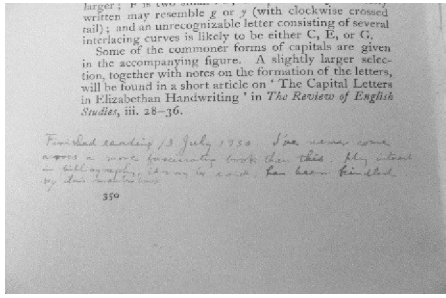 larger; F is two small
written may resemble g or y (with clockwise crossed
tail); and an unrecognizable letter consisting of several
interlacing curves is likely to be either C, E, or G.
Some of the commoner forms of capitals are given
in the accompanying figure. A slightly larger selec-
tion, together with notes on the formation of the letters,
will be found in a short article on ' The Capital Letters
in Elizabethan Handwriting ' in The Review of English
Studies, iii. 28–36.
Finished reading 13 July 1930 I've never come
across a more fascinating book than this. My interest
in bibliography, it may be said, has been kindled
by this
350